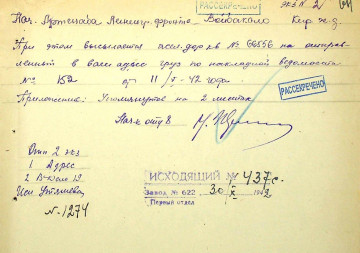 РАССЕКРЕЧЕНО
Экз № 2
Нач. Артснаба Ленингр. фронта Войбокало Кир ж.д.
При этом высылается дор № 66556 на отправ-
ленный в ваш адрес груз по накладной ведомости
№ 152 от 11/X-42 года.
РАССЕКРЕЧЕНО
Приложение: Упомянутое на 2 листах
Нач. отд 8
Отп 2 экз
1 Адрес
2 В дело
Исп
N. 1274
ИСХОДЯЩИЙ № 437с
Завод № 622 30/X 1942
Первый отдел